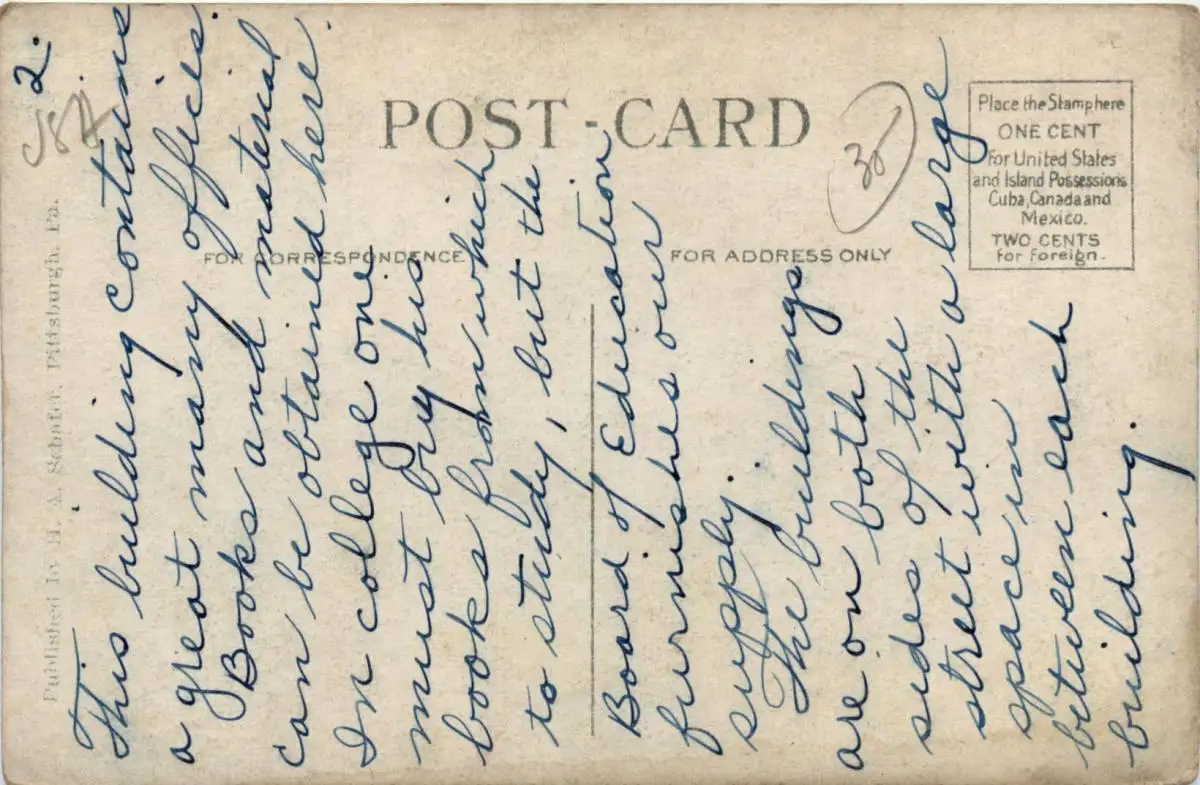 POST-CARD
FOR CORRESPONDENCE
FOR ADDRESS ONLY
Place the Stamp here
ONE CENT
For United States
and Island Possessions
Cuba, Canada and
Mexico.
TWO CENTS
for Foreign.
Published by H. A. Schafer, Pittsburgh, Pa.
2.
This building contains
a great many offices.
Books and material
can be obtained here.
In college one
must buy his
books from which
to study, but the
Board of Education
furnishes our
supply.
The buildings
are on both
sides of the
street with a large
space in
between each
building.